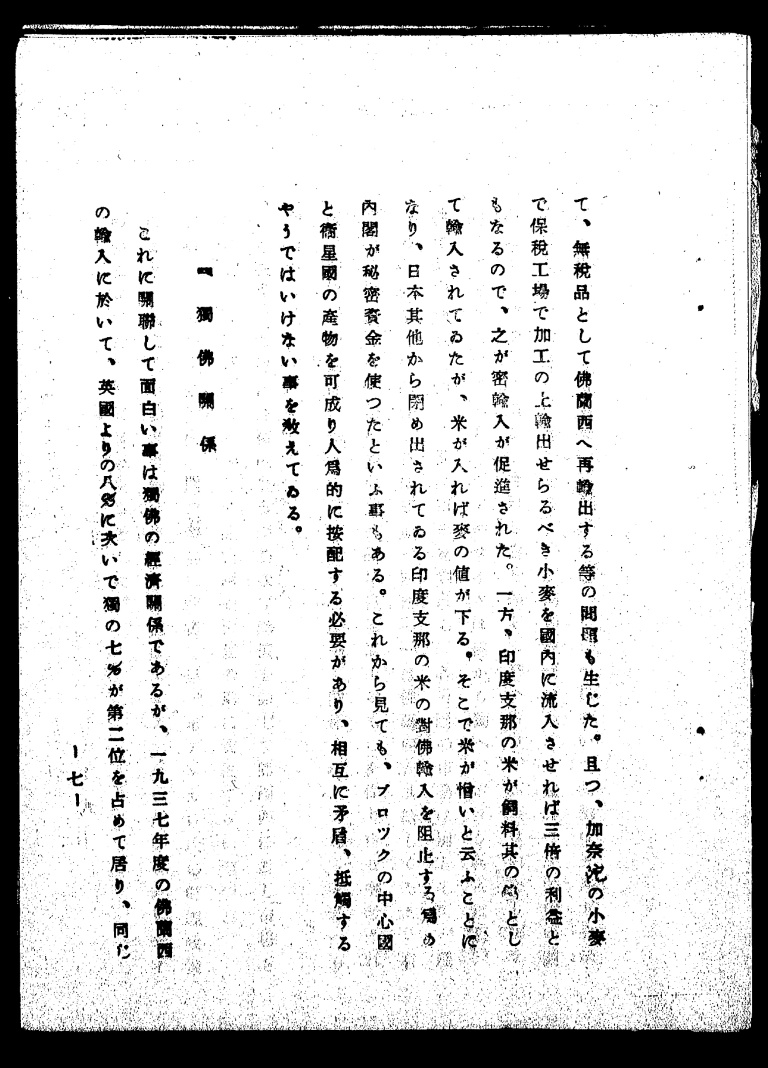 て、無税品として佛蘭西へ再輸出する等の問題も生じた。且つ、加奈陀の小麥
で保税工場で加工の上輸出せらるべき小麥を國内に流入させれば三倍の利益と
もなるので、之が密輸入が促進された。一方、印度支那の米が飼料其の他とし
て輸入されてゐたが、米が入れば麥の値が下る。そこで米が憎いと云ふことに
なり、日本其他から閉め出されてゐる印度支那の米の對佛輸入を阻止する爲め
内閣が秘密資金を使つたといふ事もある。これから見ても、ブロツクの中心國
と衞星國の產物を可成り人爲的に按配する必要があり、相互に矛盾、抵觸する
やうではいけない事を敎えてゐる。
獨佛關係
これに關聯して面白い事は獨佛の經濟關係であるが、一九三七年度の佛蘭西
の輸入に於いて、英國よりの八%に次いで獨の七%が第二位を占めて居り、同じ
ー七ー